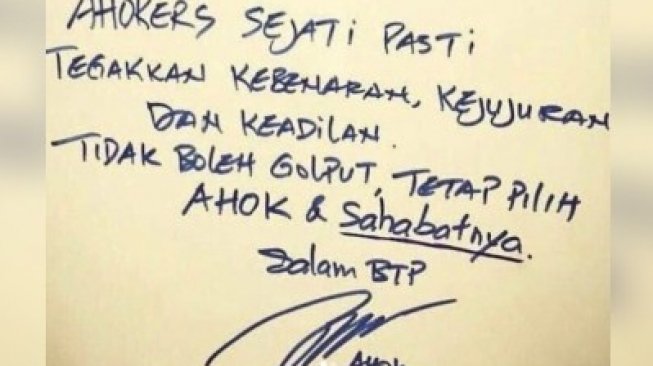 AHOKERS SEJATI PASTI
TEGAKKAN KEBENARAN, KEJUJURAN
DAN KEADILAN.
TIDAK BOLEH GOLPUT, TETAP PILIH
AHOK & Sahabatnya.
Salam BTP
AHOK